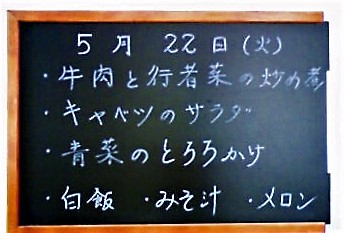 5月22日(火)
・牛肉と行者菜の炒め煮
・キャベツのサラダ
・青菜のとろろかけ
・白飯 ・みそ汁 ・メロン